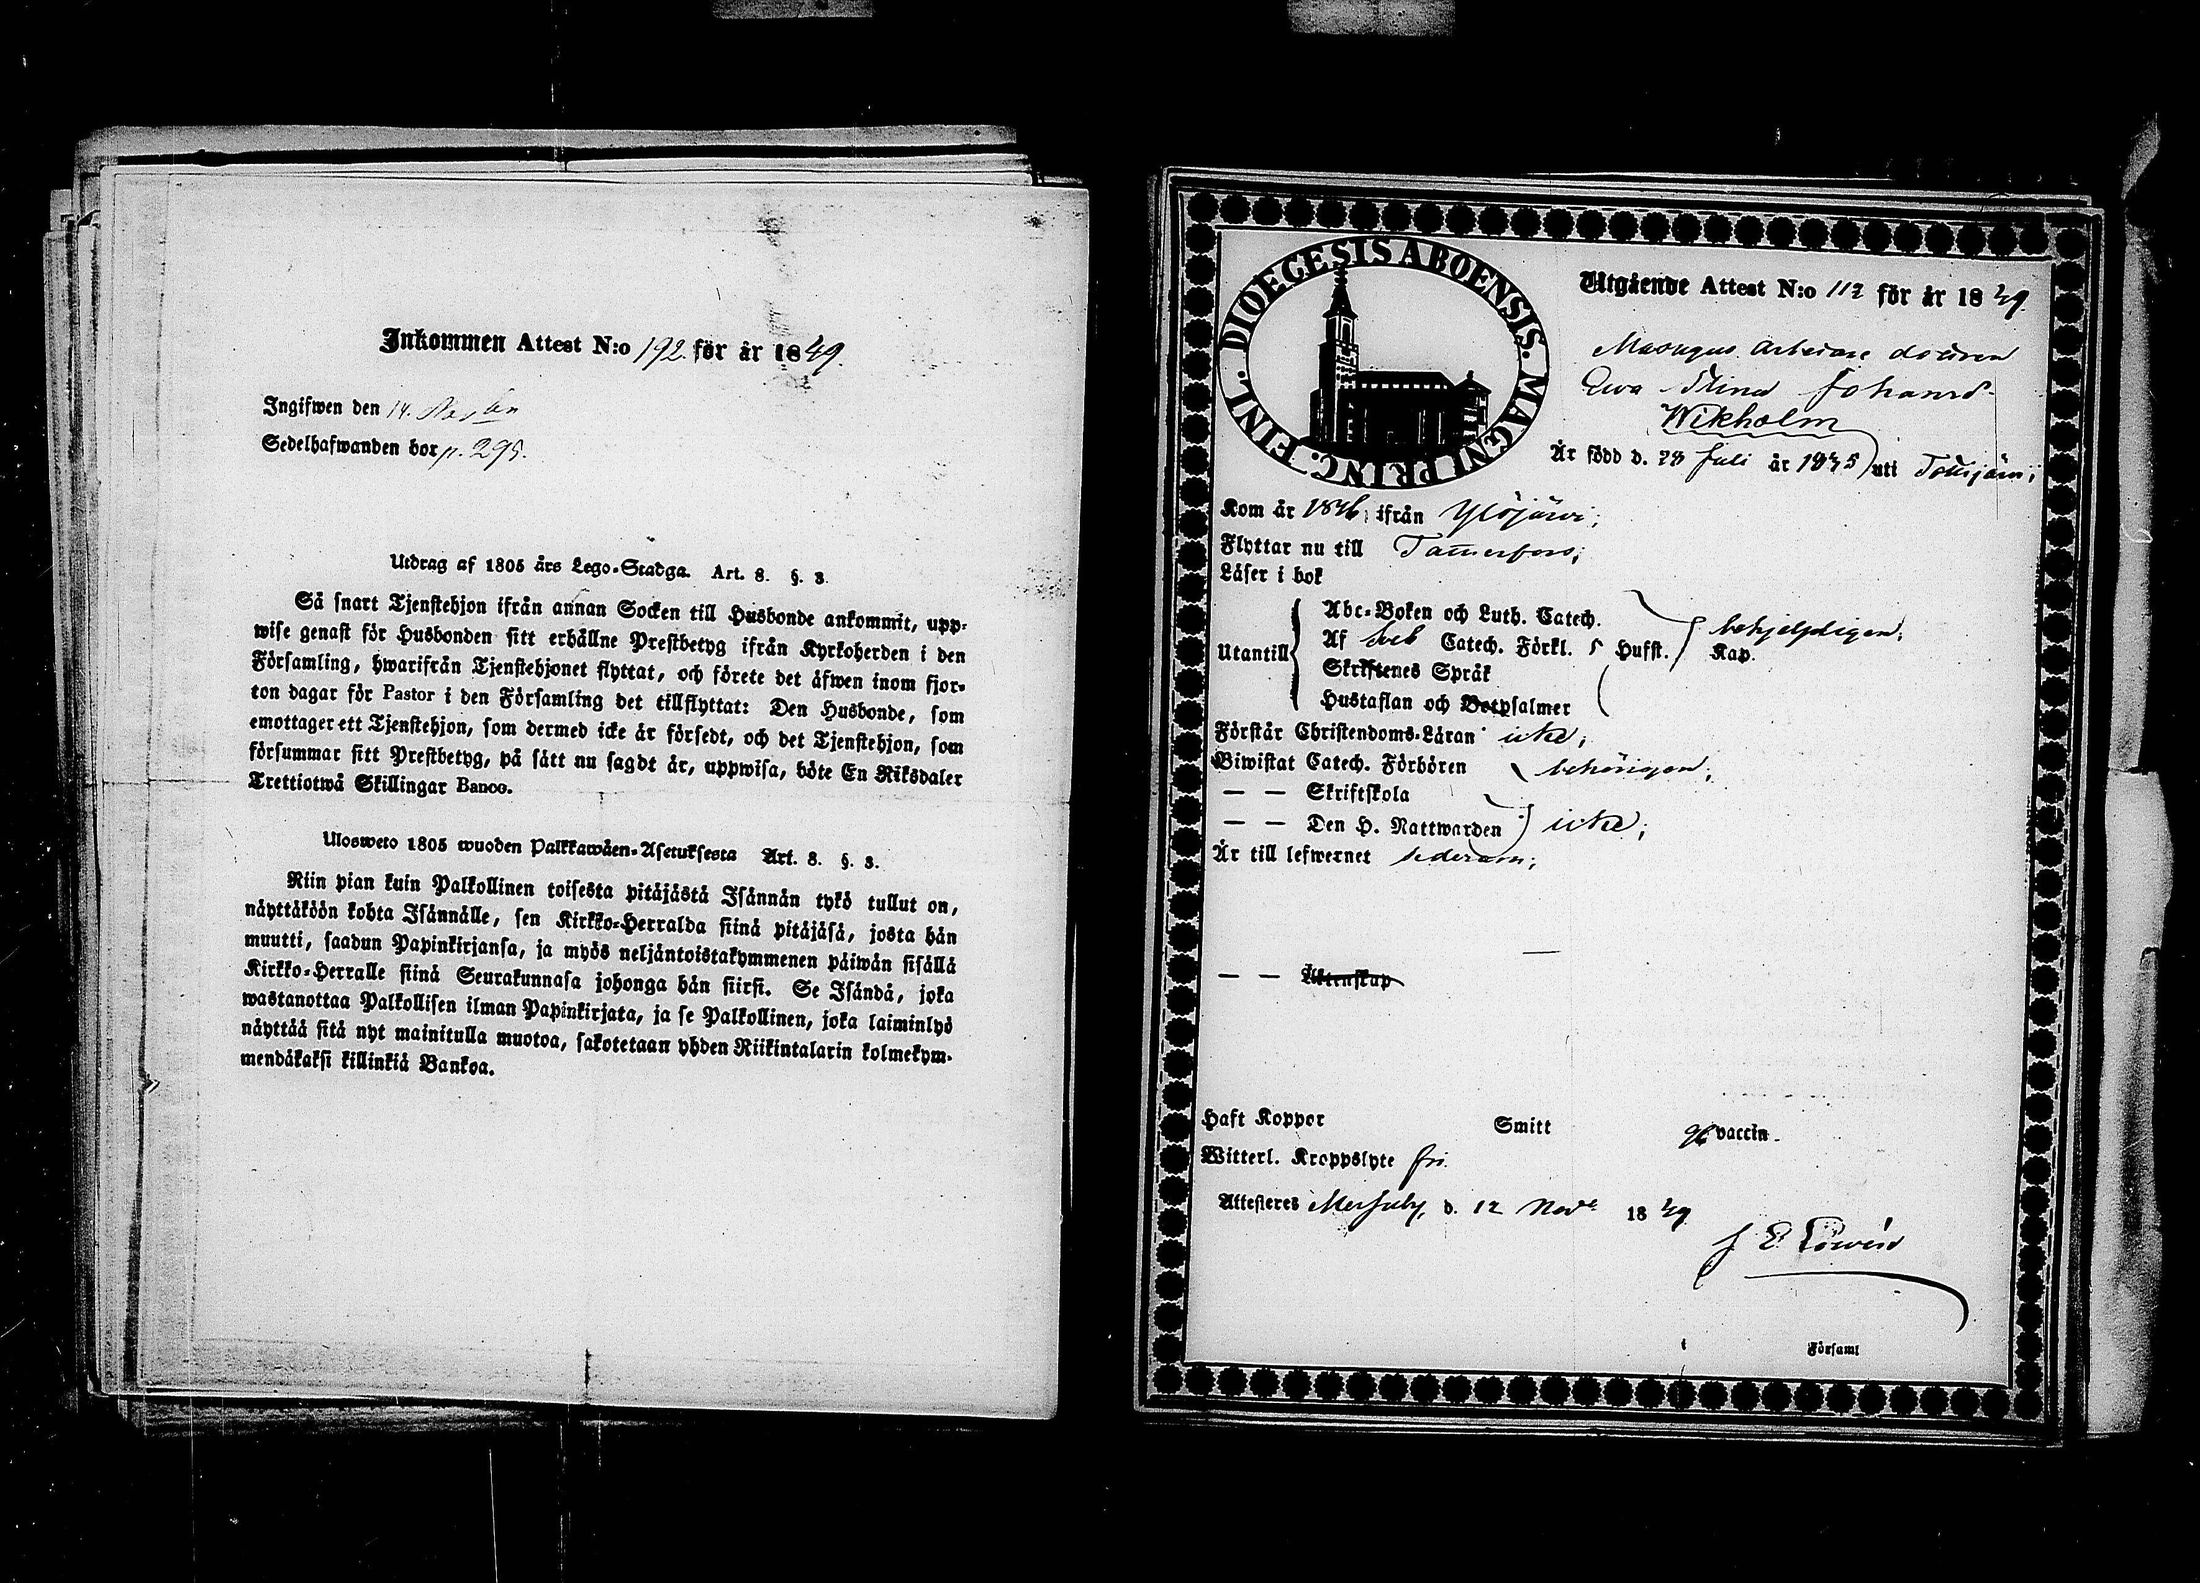 Inkommen Attest N:o 192. för år 1849.
Ingifwen den 14.
Sedelhafwanden bor p. 295.
Utdrag af 1805 års Lego-Stadga. Art. 8. §. 3.
Så snart Tjenstehjon ifrån annan Socken till Husbonde ankommit, upp-
wise genast för Husbonden sitt erhållne Prestbetyg ifrån Kyrkoherden i den
Församling, hwarifrån Tjenstehjonet flyttat, och förete det äfwen inom fjor-
ton dagar för Pastor i den Församling det tillflyttat: Den Husbonde, som
emottager ett Tjenstehjon, som dermed icke är försedt, och det Tjenstehjon, som
försummar sitt Prestbetyg, på sått nu sagdt är, uppwisa, böte En Riksdaler
Trettiotwå Skillingar Banco.
Ulosweto 1805 wuoden Palkkawäen-Asetuksesta Art. 8. §. 3.
Niin pian kuin Palkollinen toisesta pitäjästä Isännän tykö tullut on,
näyttäköön kohta Isännälle, sen Kirkko-Herralda siinä pitäjäsä, josta hän
muutti, saadun Papinkirjansa, ja myös neljäntoistakymmenen päiwän sisällä
Kirkko-Herralle siinä Seurakunnasa johonga hän siirsi. Se Isändä, joka
wastanottaa Palkollisen ilman Papinkirjata, ja se Palkollinen, joka laiminlyö
näyttää sitä nyt mainitulla muotoa, sakotetaan yhden Riikintalarin kolmekym-
mendäkaksi killinkiä Bankoa.
DIOECESIS ABOENSIS. MAGNI PRINC. FINL.
Utgående Attest N:o 112 för år 1849.
Ewa Stina Johansd.
Wikholm
Är född d. 28 Juli år 1835 uti
Kom år 1846 ifrån Ylöjärwi;
Flyttar nu till Tammerfors;
Läser i bok
Utantill
Abc-Boken och Luth. Catech.
Af Catech. Förkl. 5 Hufst. Kap.
Skriftenes Språk
Hustaflan och Botpsalmer
Förstår Christendoms-Läran icke;
Biwistat Catech. Förhören behörigen;
— — Skriftskola
— — Den H. Nattwarden icke;
Är till lefwernet sedesam;
— — Äktenskap
Haft Koppor Smitt vaccin.
Witterl. Kroppslyte fri.
Attesteres Messuby, d. 12 Nov. 1849
Församl